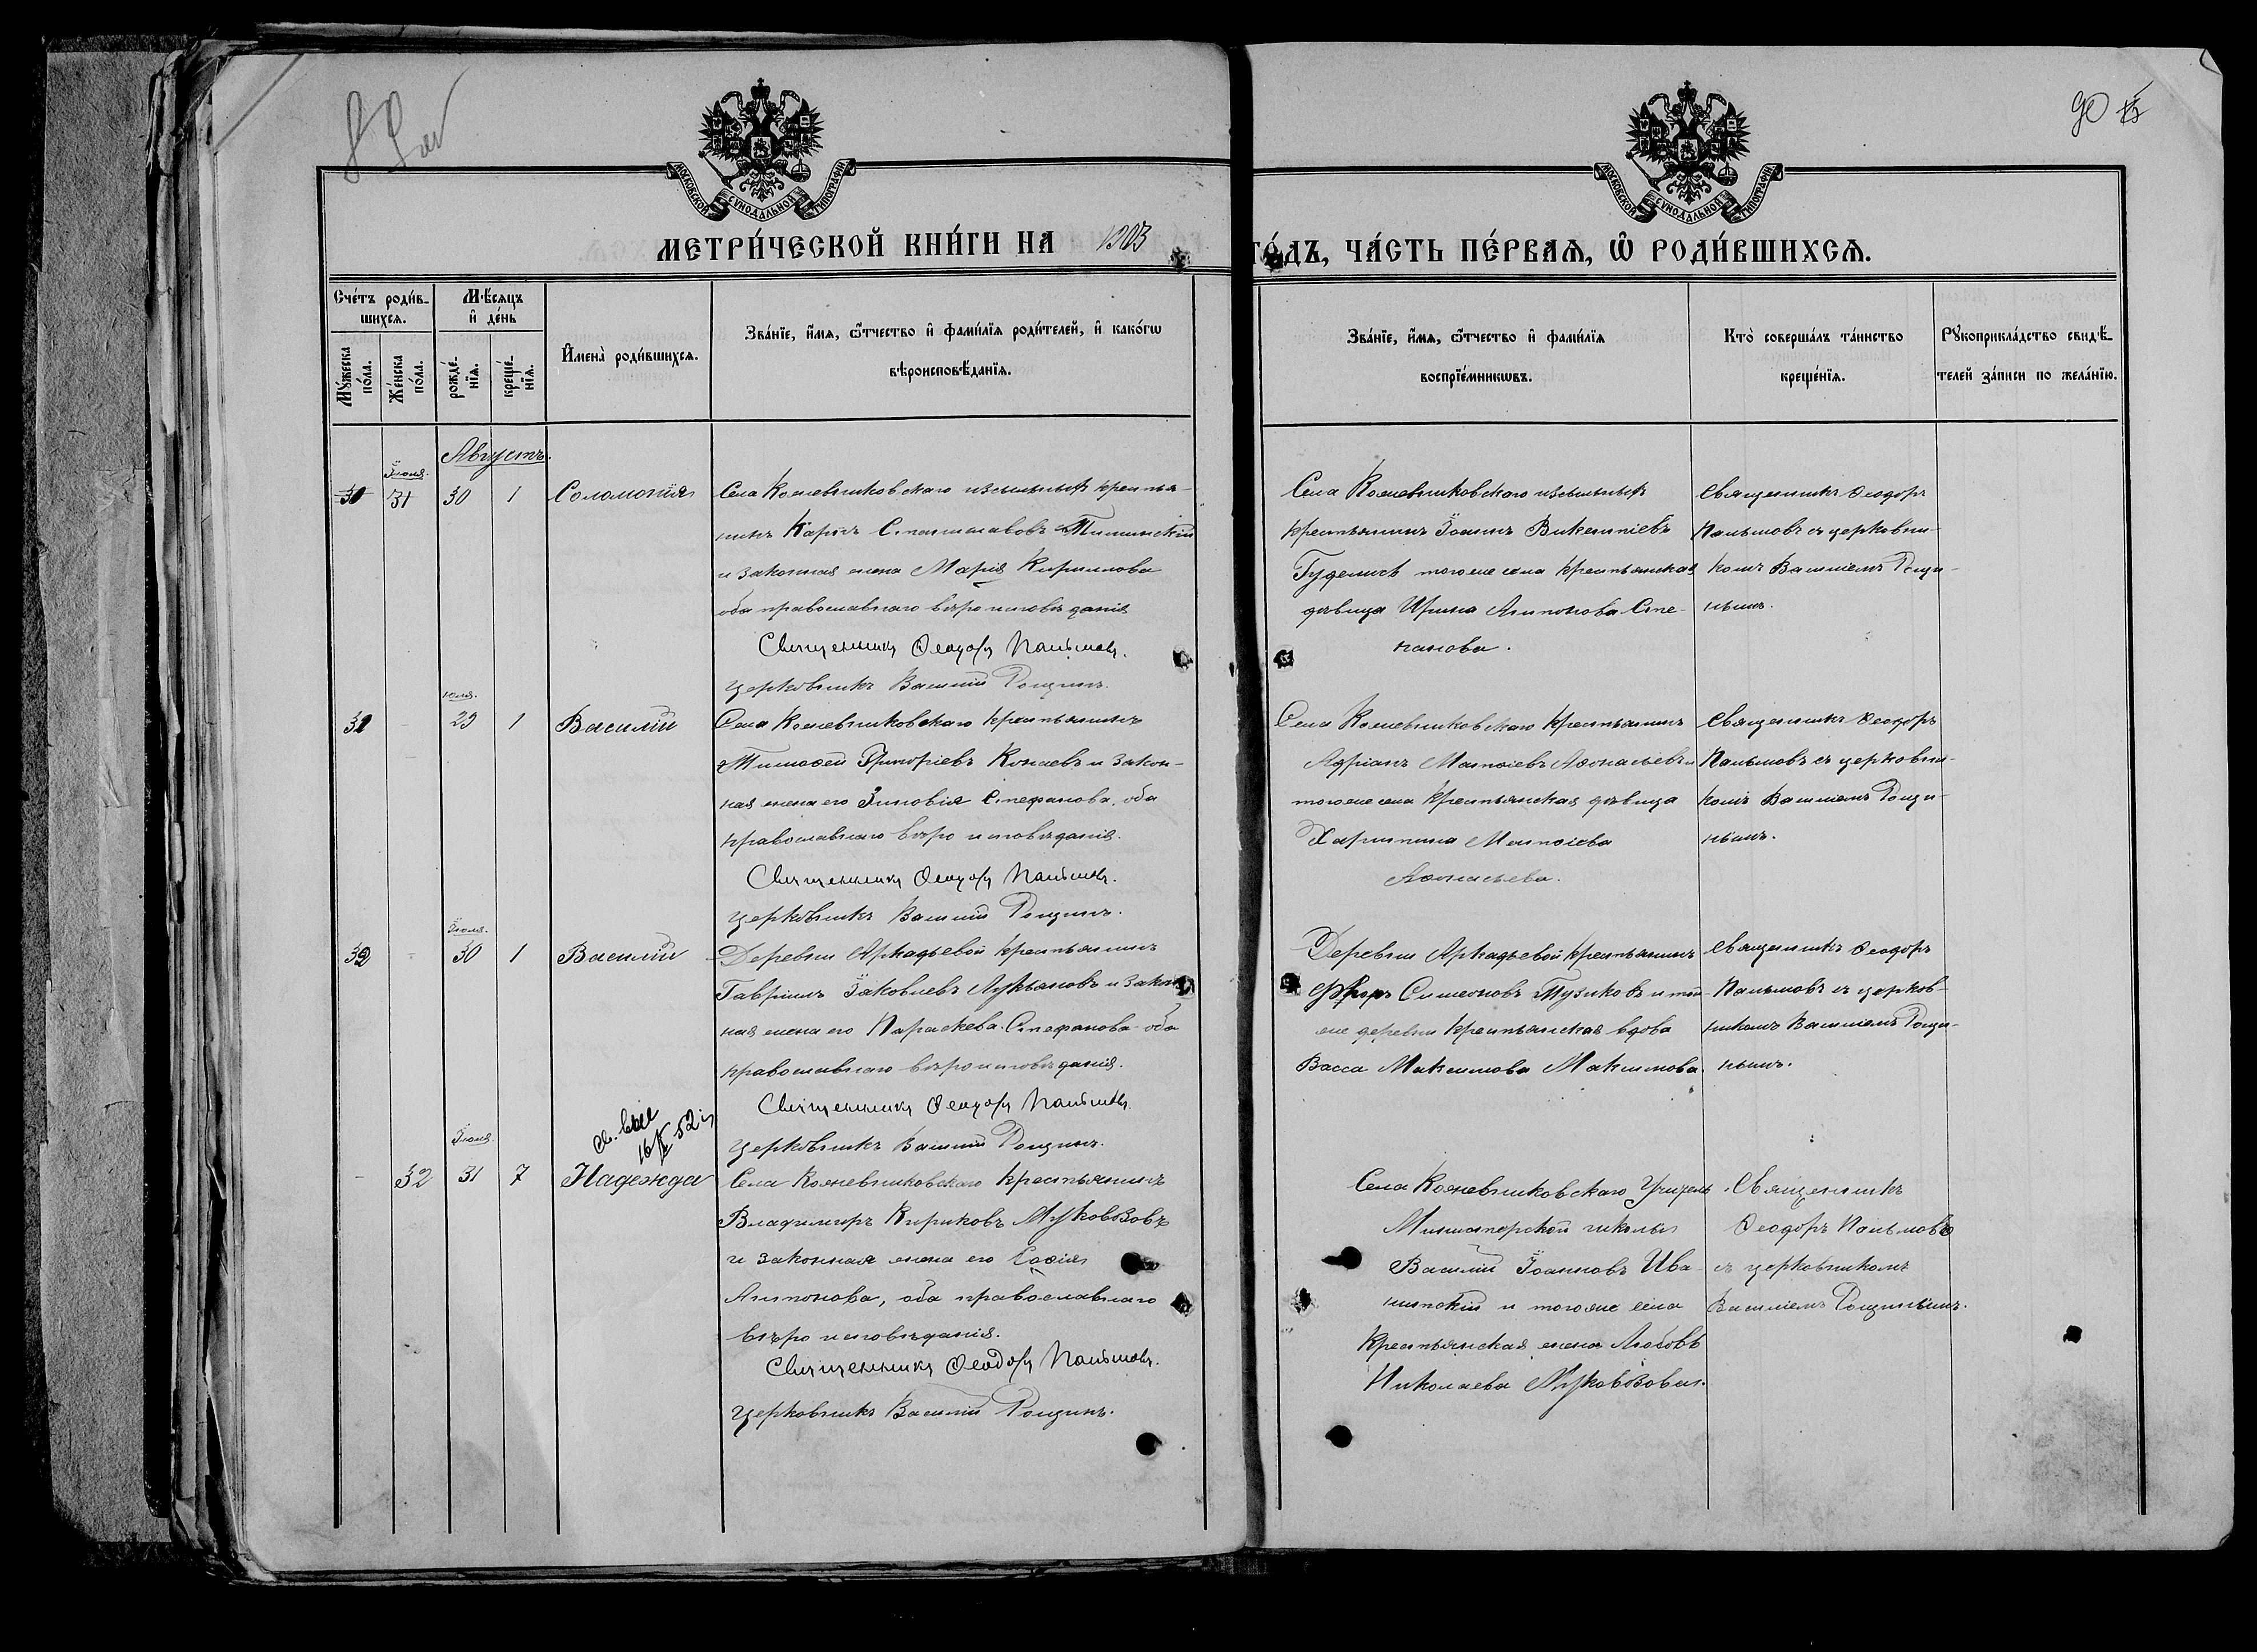 90
МОСКОВСКОЙ СѴНОДАЛЬНОЙ ТИПОГРАФІИ
МОСКОВСКОЙ СѴНОДАЛЬНОЙ ТИПОГРАФІИ
МЕТРИ́ЧЕСКОЙ КНИ́ГИ НА 1903
ГО́ДЪ, ЧА́СТЬ ПЕ́РВАѦ, Ѡ҆ РОДИ́ВШИХСѦ.
Сче́тъ роди́в-
шихсѧ.
Мꙋ́жеска по́ла.
Же́нска по́ла.
Мѣ́сѧцъ
и҆ де́нь
рожде́-
нїѧ.
креще́-
нїѧ.
И҆мена̀ роди́вшихсѧ.
Зва́нїе, и҆́мѧ, ѻ҆́тчество и҆ фами́лїѧ роди́телей, и҆ како́гѡ
вѣроисповѣ́данїѧ.
Зва́нїе, и҆́мѧ, ѻ҆́тчество и҆ фами́лїѧ
воспрїе́мникѡвъ.
Кто̀ соверша́лъ та́инство
креще́нїѧ.
Рꙋкоприкла́дство свидѣ́-
телей за́писи по жела́нїю.
Августъ.
30 31 30 1 Соломонія
Села Кожевниковскаго крестья-
нинъ Станиславовъ
и законная жена Марія Кириллова
оба православнаго вѣроисповѣданія
Священникъ Ѳеодоръ Пальмовъ.
Церковникъ Василій Рощинъ.
Села Кожевниковскаго
крестьянинъ Іоаннъ Викентіевъ
тогоже села крестьянская
дѣвица Ирина Антонова Сте-
панова.
Священникъ Ѳеодоръ
Пальмовъ съ церковни-
комъ Василіемъ Рощи-
нымъ.
юля.
31 - 29 1 Василій
Села Кожевниковскаго крестьянинъ
Тимоѳей Григоріевъ Конаевъ и закон-
ная жена его Зиновія Стефанова, оба
православнаго вѣроисповѣданія.
Священникъ Ѳеодоръ Пальмовъ.
Церковникъ Василій Рощинъ.
Села Кожевниковскаго крестьянинъ
Адріанъ Матѳіевъ Аѳонасьевъ и
тогоже села крестьянская дѣвица
Харитина Матѳіева
Аѳонасьева.
Священникъ Ѳеодоръ
Пальмовъ съ церковни-
комъ Василіемъ Рощи-
нымъ.
Іюля.
32 - 30 1 Василій
Деревни Аркадьевой крестьянинъ
Гавріилъ Іаковлевъ Лукьяновъ и закон-
ная жена его Параскева Стефанова оба
православнаго вѣроисповѣданія.
Священникъ Ѳеодоръ Пальмовъ.
Церковникъ Василій Рощинъ.
Деревни Аркадьевой крестьянинъ
Симеоновъ Тузиковъ и той
же деревни крестьянская вдова
Васса Максимова Максимова.
Священникъ Ѳеодоръ
Пальмовъ съ церков-
никомъ Василіемъ Рощи-
нымъ.
Іюля
- 32 31 7 Надежда
Села Кожевниковскаго крестьянинъ
Владимиръ Кириковъ Муковозовъ
и законная жена его Софія
Антонова, оба православнаго
вѣроисповѣданія.
Священникъ Ѳеодоръ Пальмовъ.
Церковникъ Василій Рощинъ.
Села Кожевниковскаго Учитель
Министерской школы
Василій Іоанновъ Ива-
ницкій и тогоже села
крестьянская жена Любовь
Николаева Муковозова.
Священникъ
Ѳеодоръ Пальмовъ
съ церковникомъ
Василіемъ Рощинымъ.